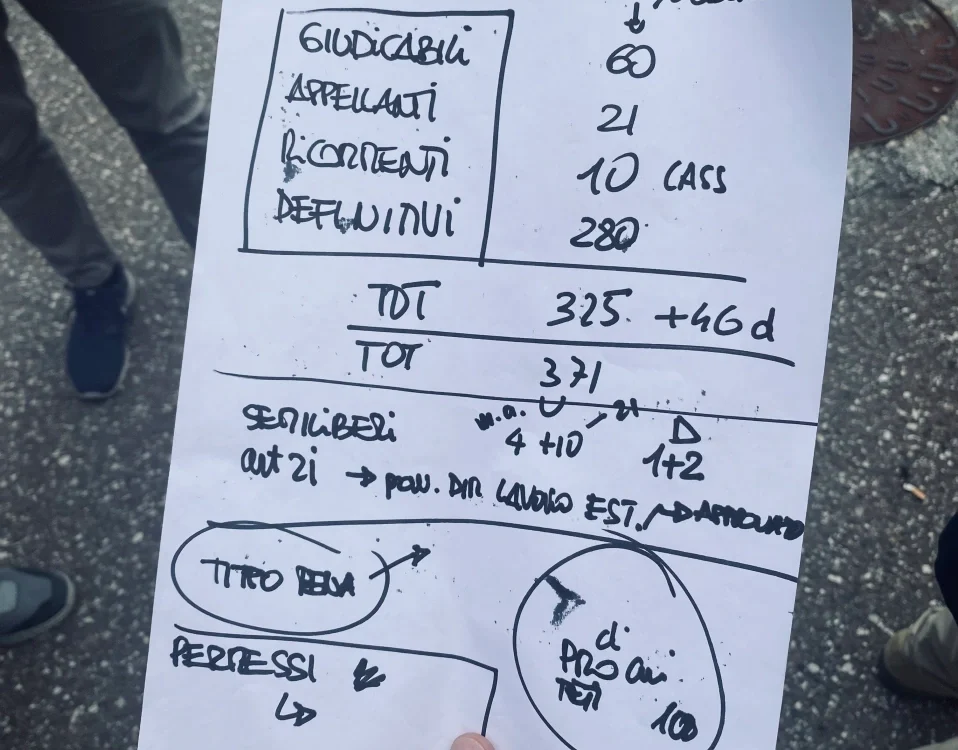 GIUDICABILI 60
APPELLANTI 21
RICORRENTI 10 CASS
DEFINITIVI 280
TOT 325 +46 d
TOT 371
SEMILIBERI
4 +10 21
D
1+2
art 21 → LAVORO EST.
TITPO PENA →
PERMESSI
di
PRO
100